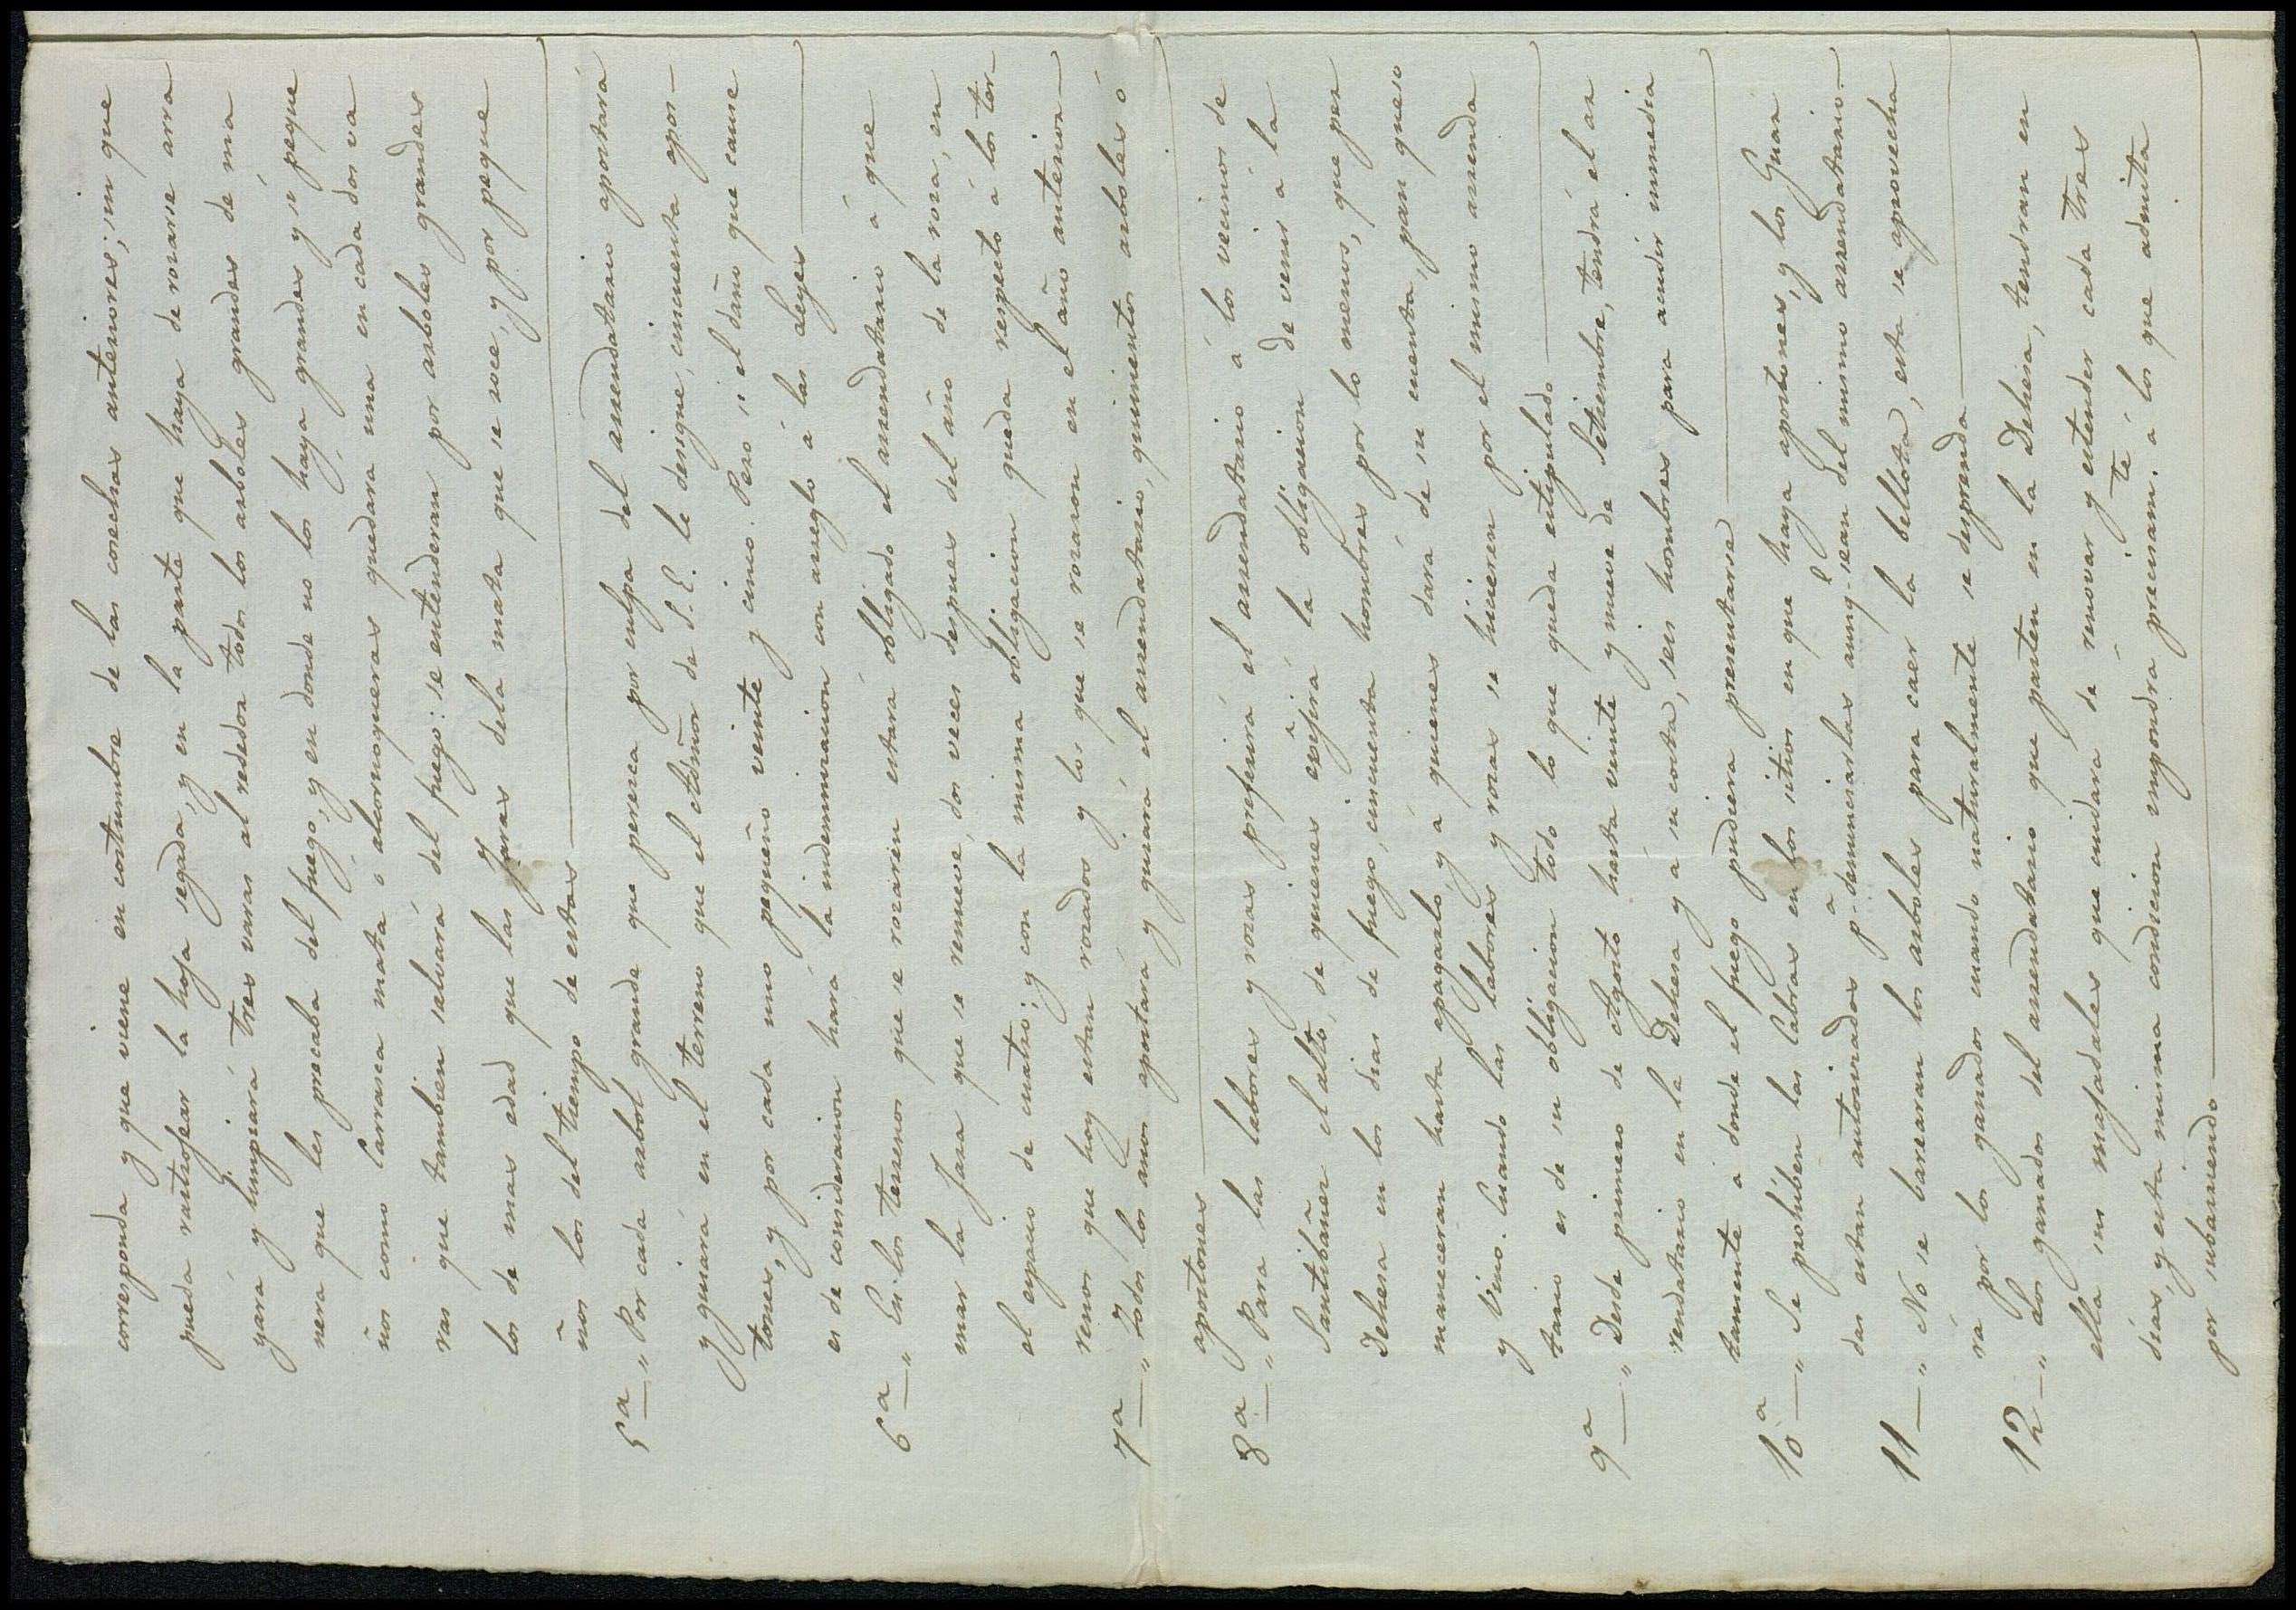 corresponda y que viene en costumbre de las cosechas anteriores; sin que
pueda rastrojear la hoja segada, y en la parte que haya de rozarse arra
yará y limpiará tres varas al rededor todos los arboles grandes de ma
nera que les precaba del fuego, y en donde no los haya grandes y si peque
ños como Carrasca mata ó alcornoqueras quedara una en cada dos va
ras que tambien salvará del fuego: se entenderan por arboles grandes
los de mas edad que las Jaras dela mata que se roce, y por peque
ños los del tiempo de estas
5ª „ Por cada arbol grande que perezca por culpa del arrendatario apostará
y guiará en el terreno que el Admor de S.E. le designe, cincuenta apos-
tones, y por cada uno pequeño veinte y cinco. Pero si el daño que cause
es de consideracion hará la indemnizacion con arreglo á las Leyes
6ª „ En los terrenos que se rozaren estará obligado el arrendatario á que
mar la Jara que se renueve, dos veces despues del año de la roza, en
el espacio de cuatro; y con la misma obligacion queda respecto á los ter-
renos que hoy estan rozados y los que se rozaron en el año anterior
7ª „ Todos los años apostará y guiará el arrendatario, quinientos arboles ó
apostones
8ª „ Para las labores y rozas preferirá el arrendatario á los vecinos de
Santibañez el alto, de quienes exijirá la obligacion de venir á la
Dehesa en los dias de fuego, cincuenta hombres por lo menos, que per
maneceran hasta apagarlo, y á quienes dará de su cuenta, pan queso
y Vino. Cuando las labores y rozas se hicieren por el mismo arrenda
tario es de su obligacion todo lo que queda estipulado
9ª „ Desde primero de Agosto hasta veinte y nueve de Setiembre, tendrá el ar
rendatario en la Dehesa y á su costa, seis hombres para acudir inmedia
tamente á donde el fuego pudiera presentarse
10ª „ Se prohiben las Cabras en los sitios en que haya apostones, y los Guar
das estan autorizados pª denunciarlas aunqe sean del mismo arrendatario
11 „ No se barearan los arboles para caer la bellota, esta se aprovecha
rá por los ganados cuando naturalmente se desprenda
12 „ Los ganados del arrendatario que pasten en la Dehesa, tendran en
ella sus majadales que cuidará de renovar y estender cada tres
dias, y esta misma condicion impondra precisamte á los que admita
por subarriendo